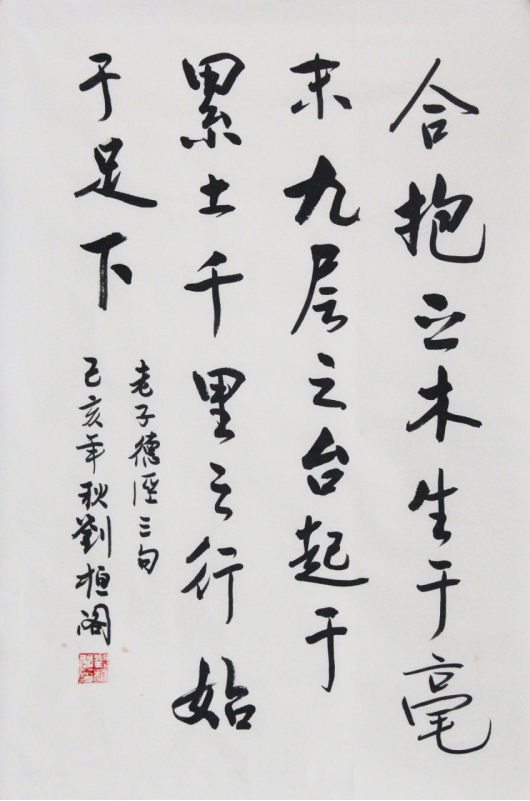 合抱之木生于毫
末九层之台起于
累土千里之行始
于足下
老子德经三句
己亥年秋劉桓阁